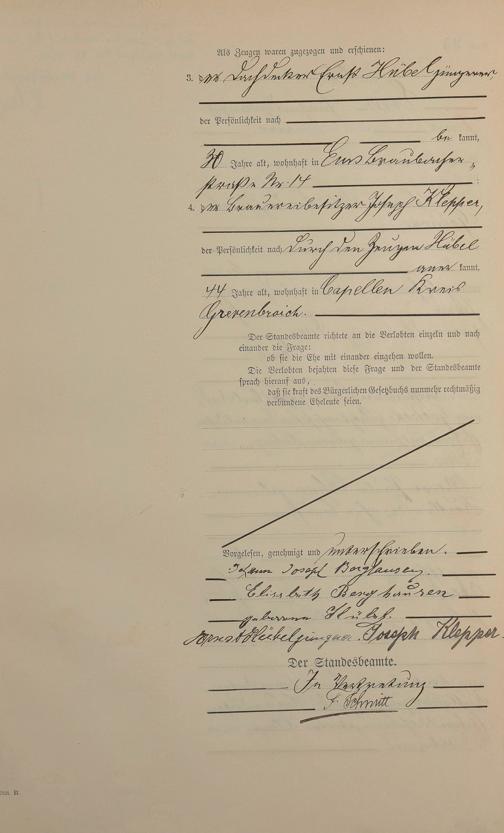 Als Zeugen waren zugezogen und erschienen:
3. der Dachdecker Ernst Hübel jüngerer,
der Persönlichkeit nach
be kannt,
30 Jahre alt, wohnhaft in Ems Braubacher-
straße Nr 14
4. der Brauereibesitzer Joseph Klepper,
der Persönlichkeit nach durch den Zeugen Hübel
aner kannt,
44 Jahre alt, wohnhaft in Capellen Kreis
Grevenbroich.
Der Standesbeamte richtete an die Verlobten einzeln und nach
einander die Frage:
ob sie die Ehe mit einander eingehen wollen.
Die Verlobten bejahten diese Frage und der Standesbeamte
sprach hierauf aus,
daß sie kraft des Bürgerlichen Gesetzbuchs nunmehr rechtmäßig
verbundene Eheleute seien.
Vorgelesen, genehmigt und unterschrieben.
Johann Joseph Berghausen.
Elisabeth Berghausen
geborene
Ernst Hübel jüngerer. Joseph Klepper.
Der Standesbeamte.
In Vertretung
F. Schmitt
B.